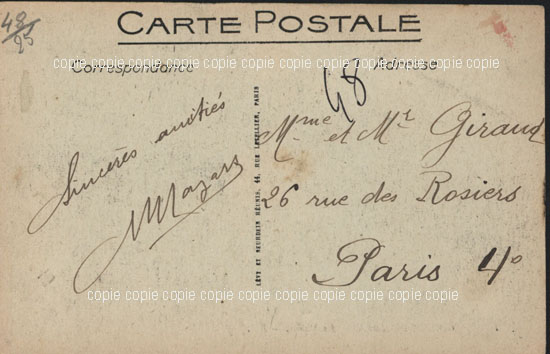 48/95
CARTE POSTALE
copie copie copie copie copie copie copie copie copie
Correspondance
Adresse
48
Sincères amitiés
Mme et Mr Giraud
26 rue des Rosiers
Paris 4º
LÉVY ET NEURDEIN RÉUNIS, 44, RUE LETELLIER, PARIS
copie copie copie copie copie copie copie copie copie
copie copie copie copie copie copie copie copie copie
copie copie copie copie copie copie copie copie copie